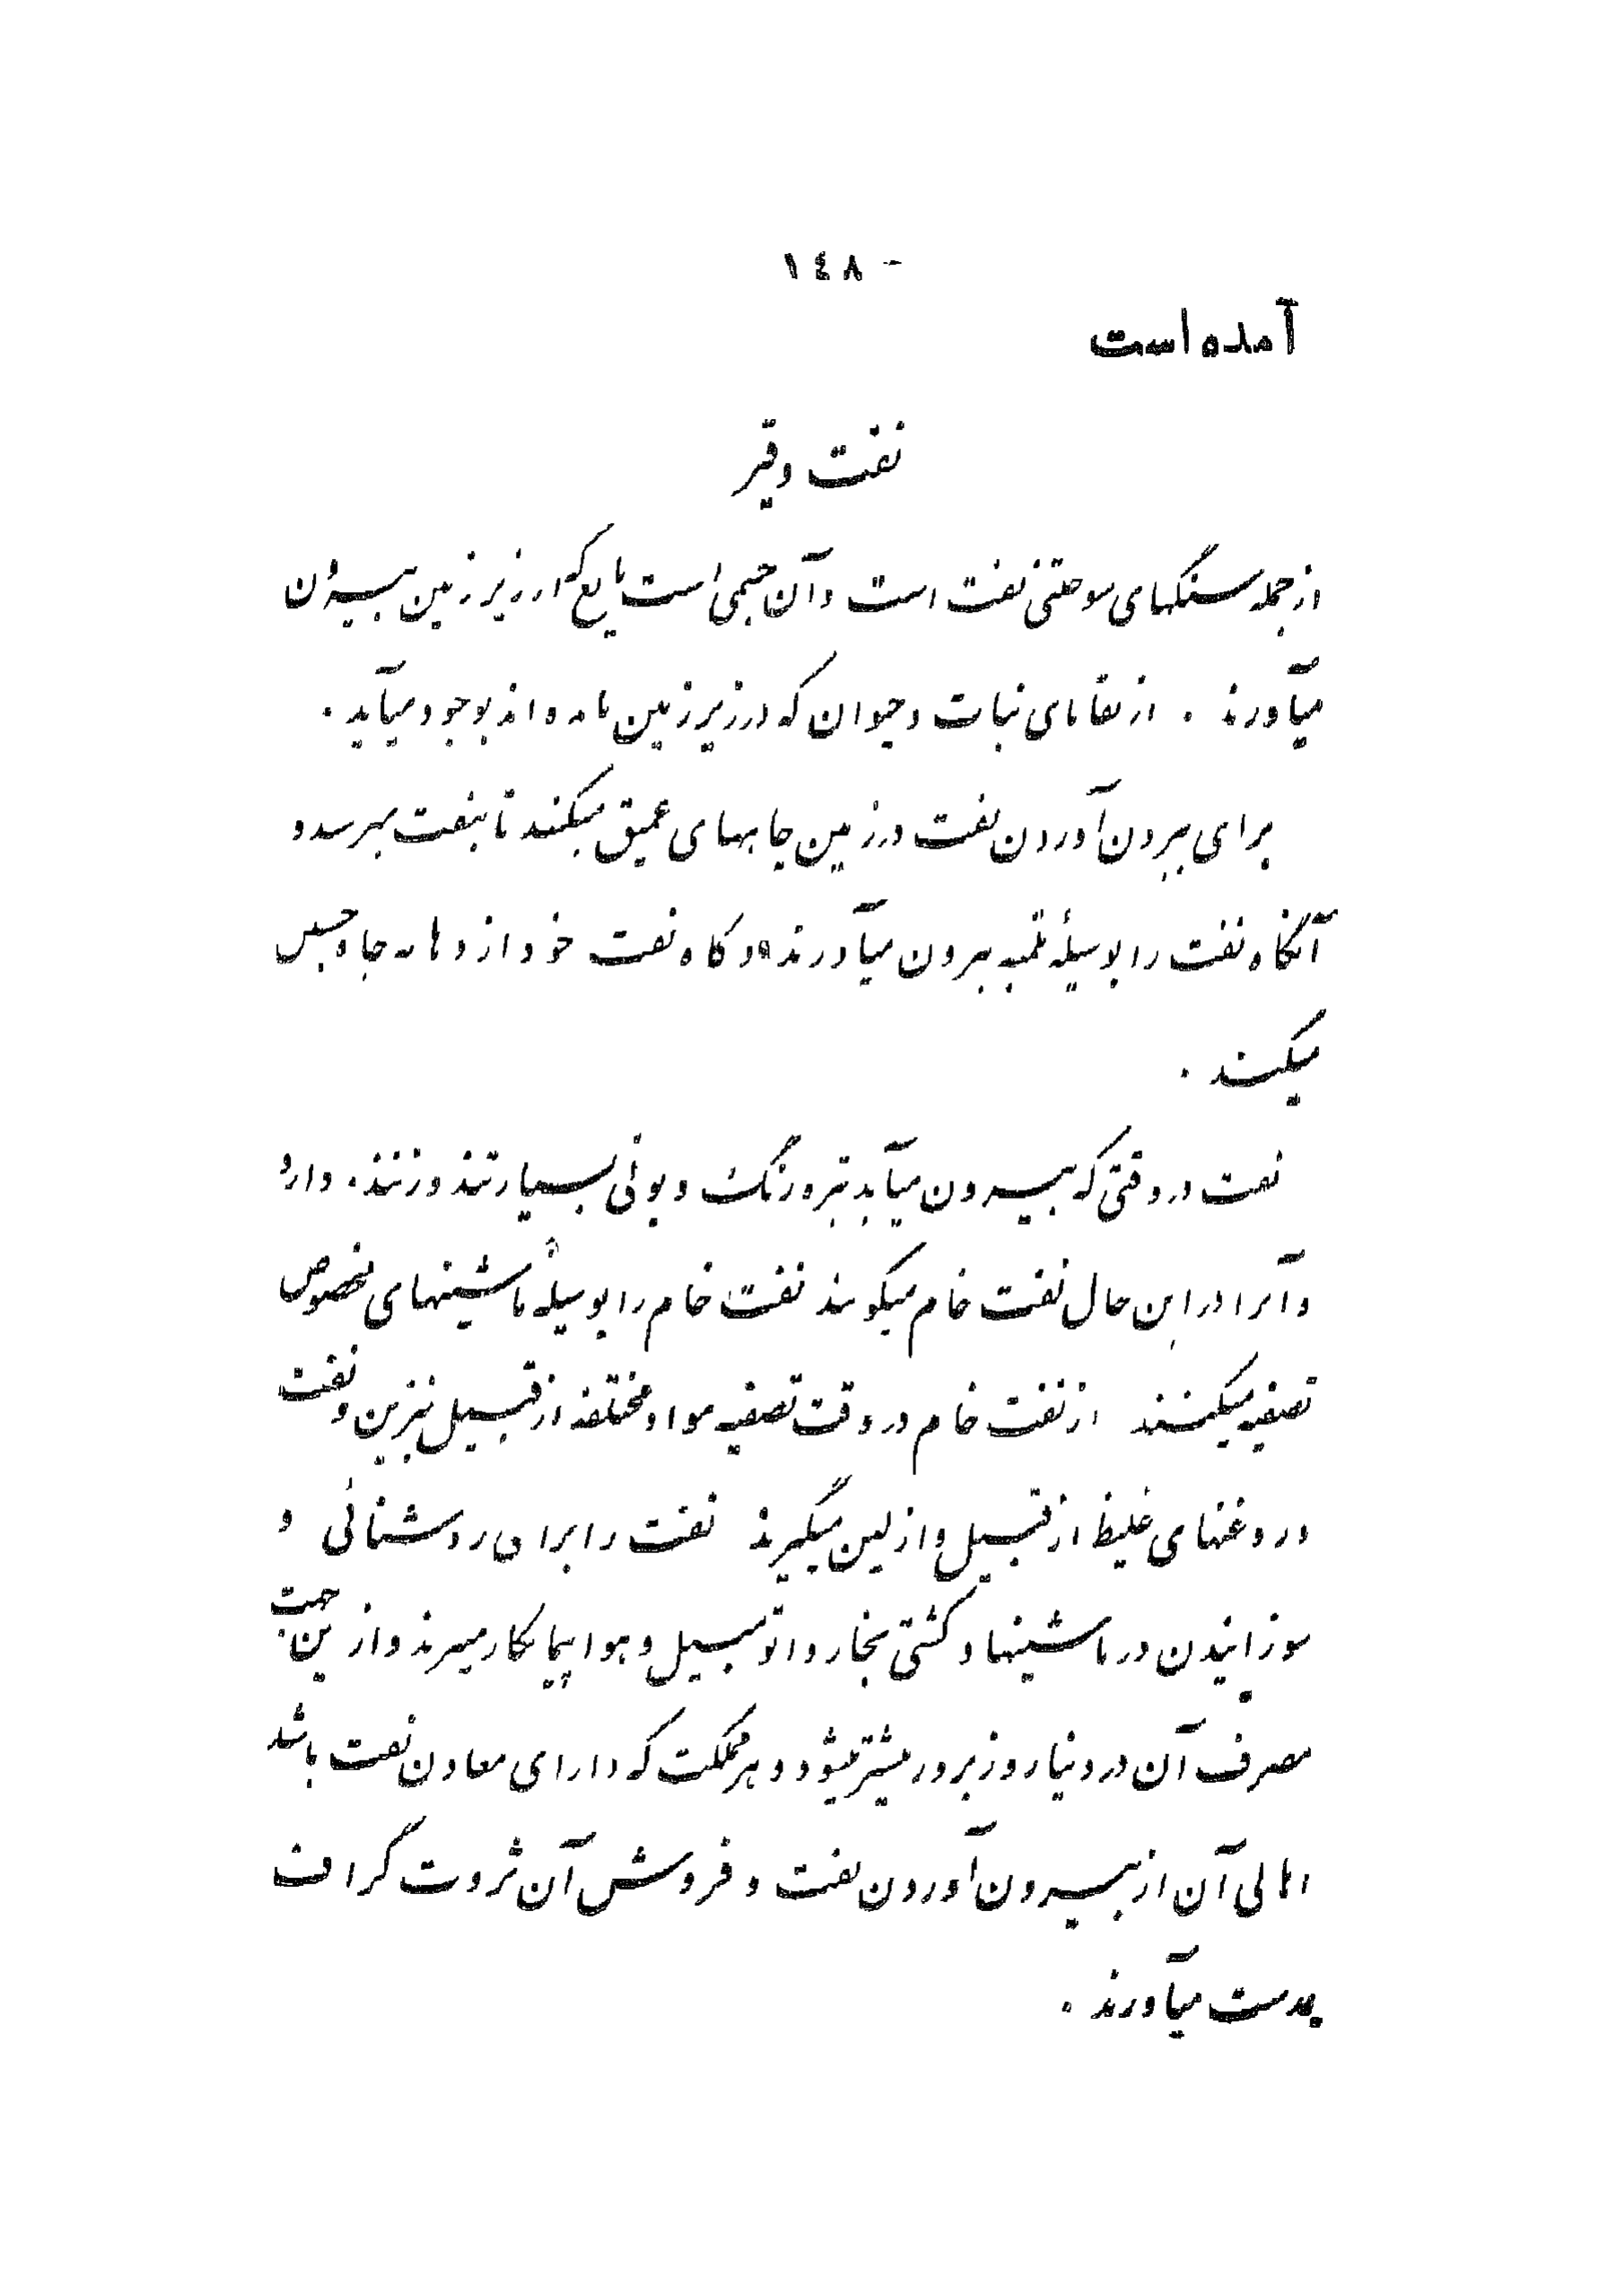 - ١٤٨
آمده است
نفت و قیر
از جمله سنگهای سوختنی نفت است و آن جسمی است مایع که از زیر زمین بیرون
میآورند . از بقایای نبات و حیوان که در زیر زمین مانده‌اند بوجود میآید .
برای بیرون آوردن نفت در زمین چاههای عمیق میکنند تا بنفت برسد و
آنگاه نفت را بوسیلهٔ تلمبه بیرون میآورند و گاه نفت خود از دهانه چاه جستن
میکند .
نفت در وقتی که بیرون میآید تیره رنگ و بوئی بسیار تند و زننده دارد
و آنرا در این حال نفت خام میگویند نفت خام را بوسیلهٔ ماشینهای مخصوص
تصفیه میکنند از نفت خام در وقت تصفیه مواد مختلفه از قبیل بنزین و نفت
و روغنهای غلیظ از قبیل وازلین میگیرند نفت را برای روشنائی و
سوزانیدن در ماشینها و کشتی بخار و اتومبیل و هواپیما بکار میبرند و از این جهت
مصرف آن در دنیا روز بروز بیشتر میشود و هر مملکت که دارای معادن نفت باشد
اهالی آن از بیرون آوردن نفت و فروش آن ثروت گزاف
بدست میآورند .